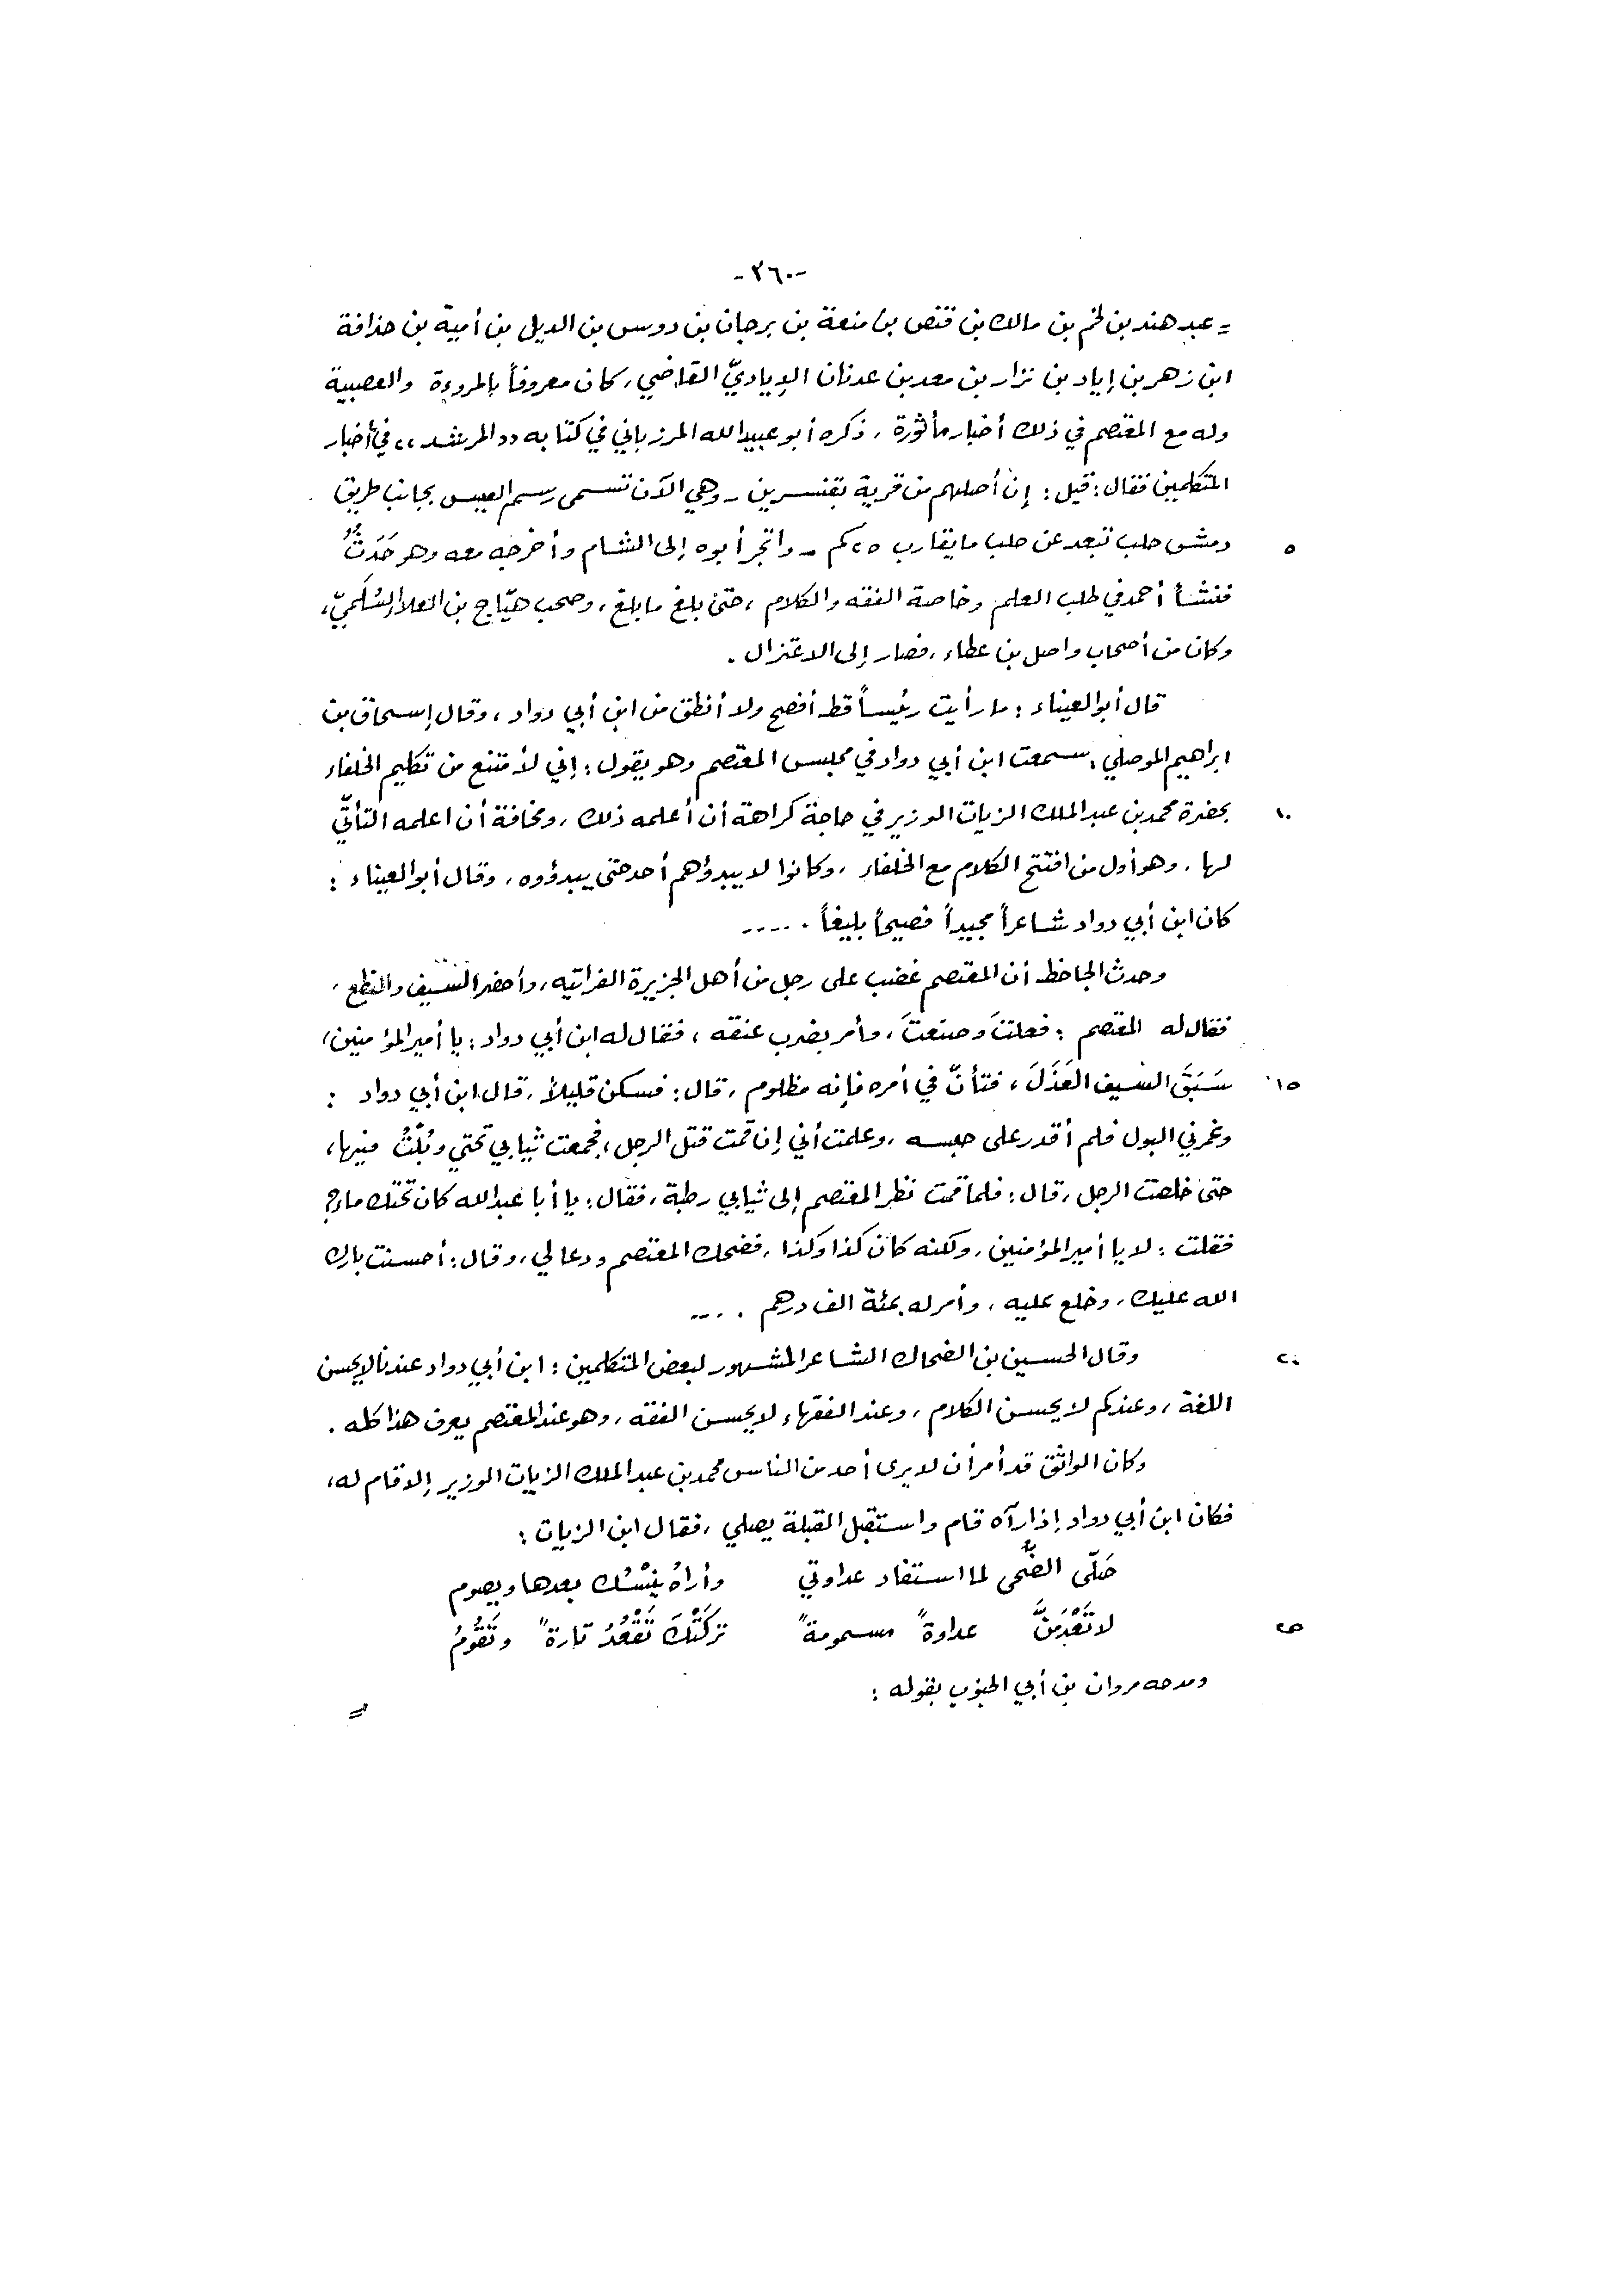 -٣٦٠-
= عبد هند بن لخم بن مالك بن قنص بن منعة بن برجان بن دوس بن الديل بن أمية بن حذافة
ابن زهر بن إياد بن نزار بن معد بن عدنان الإياديّ القاضي، كان معروفاً بالمروءة والعصبية
وله مع المعتصم في ذلك أخبار مأثورة، ذكره أبو عبيد الله المرزباني في كتابه ((المرشد)) في أخبار
المتكلمين فقال: قيل: إن أصلهم من قرية بقنسرين - وهي الآن تسمى رسم العيس بجانب طريق
دمشق حلب تبعد عن حلب ما يقارب ٢٥ كم - واتجر أبوه إلى الشام وأخرجه معه وهو حَدَثٌ
٥
فنشأ أحمد في طلب العلم وخاصة الفقه والكلام، حتى بلغ ما بلغ، وصحب هيّاج بن العلاء السُلَميّ،
وكان من أصحاب واصل بن عطاء، فصار إلى الاعتزال.
قال أبو العيناء: ما رأيت رئيساً قط أفصح ولا أنطق من ابن أبي دواد، وقال إسحاق بن
ابراهيم الموصلي: سمعت ابن أبي دواد في مجلس المعتصم وهو يقول: إني لأمتنع من تكليم الخلفاء
بحضرة محمد بن عبد الملك الزيات الوزير في حاجة كراهة أن أعلمه ذلك، ومخافة أن اعلمه التأتّي
١٠
لها، وهو أول من افتتح الكلام مع الخلفاء، وكانوا لا يبدؤهم أحد حتى يبدؤوه، وقال أبو العيناء:
كان ابن أبي دواد شاعراً مجيداً فصيحاً بليغاً.....
وحدث الجاحظ أن المعتصم غضب على رجل من أهل الجزيرة الفراتيه، وأحضر السيف والنطع،
فقال له المعتصم: فعلتَ وصنعتَ، وأمر بضرب عنقه، فقال له ابن أبي دواد: يا أمير المؤمنين،
سَبَقَ السيف العَذَلَ، فتأنّ في أمره فإنه مظلوم، قال: فسكن قليلاً، قال ابن أبي دواد:
١٥
وغمرني البول فلم أقدر على حبسه، وعلمت أني إن قمت قتل الرجل، فجمعت ثيابي تحتي وبُلْتُ فيها،
حتى خلصت الرجل، قال: فلما قمت نظر المعتصم إلى ثيابي رطبة، فقال: يا أبا عبد الله كان تحتك ماء؟
فقلت: لا يا أمير المؤمنين، ولكنه كان كذا وكذا، فضحك المعتصم ودعا لي، وقال: أحسنت بارك
الله عليك، وخلع عليه، وأمر له بمئة الف درهم.....
وقال الحسين بن الضحاك الشاعر المشهور لبعض المتكلمين: ابن أبي دواد عندنا لايحسن
٢٠
اللغة، وعندكم لا يحسن الكلام، وعند الفقهاء لا يحسن الفقه، وهو عند المعتصم يعرف هذا كله.
وكان الواثق قد أمر أن لا يرى أحد من الناس محمد بن عبد الملك الزيات الوزير إلا قام له،
فكان ابن أبي دواد إذا رآه قام واستقبل القبلة يصلي، فقال ابن الزيات:
صَلّى الضُّحى لما استفاد عداوتي وأراهُ يَنْسُك بعدها ويصوم
لا تَعْدَمَنَّ عداوةً مسمومةً تركَتْكَ تَقْعُدُ تارةً وتَقُومُ
٢٥
ومدحه مروان بن أبي الجنوب بقوله:
=